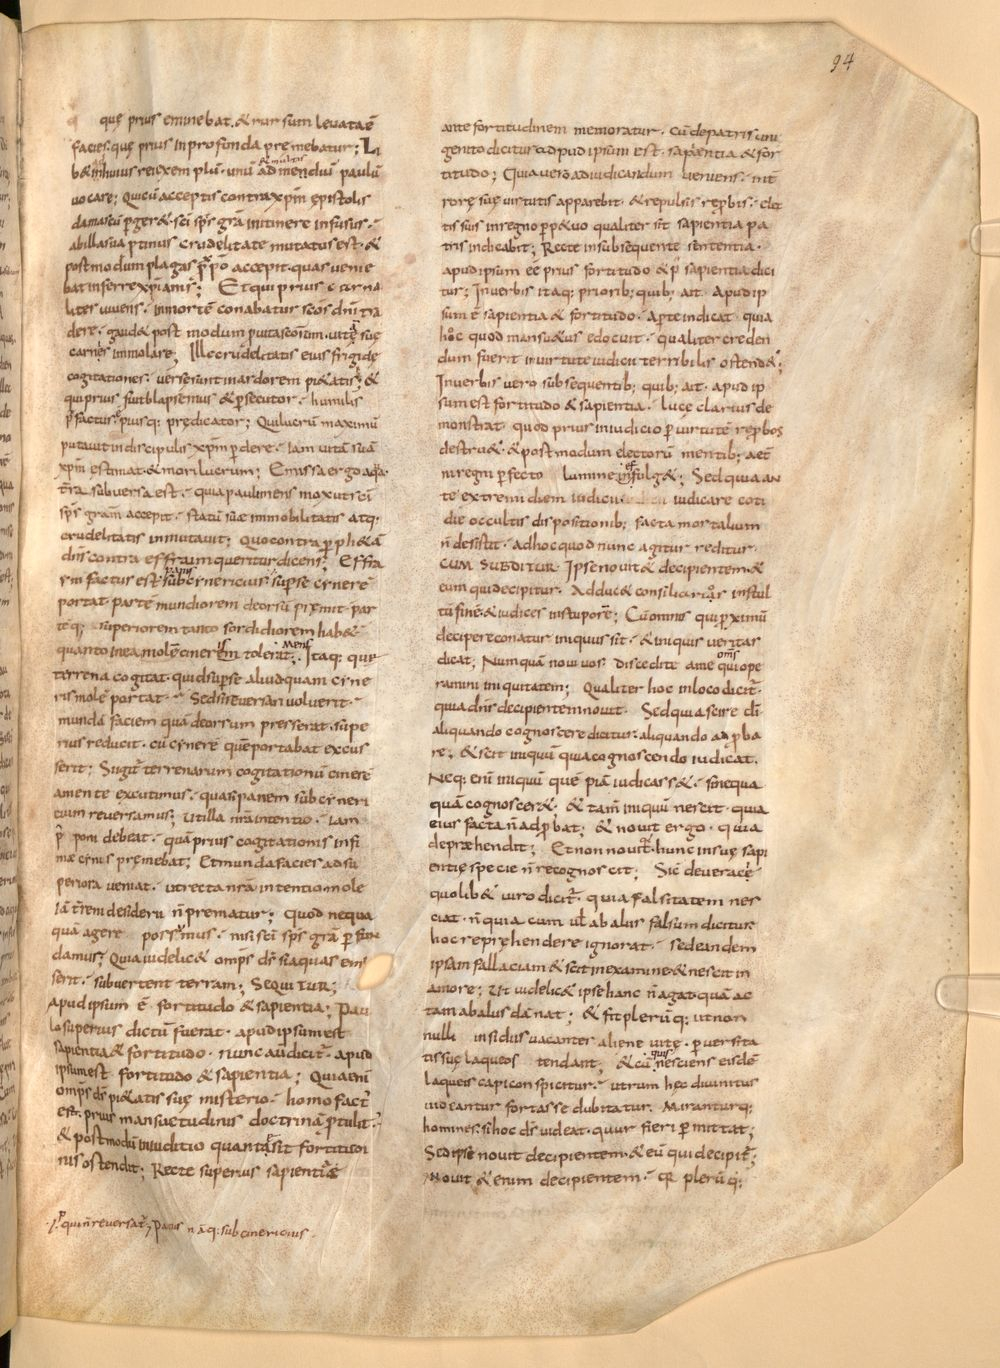 94
quę prius eminebat. & rursum leuata ē
facies. quę prius in profunda premebatur; Li
b& inhuius rei exem plū. unū & multis ad mediū paulū
uocare; Qui cū acceptis contra xp̄m epistolis
damascū perger&. sc̄i sp̄s grā in itinere infusus.
ab illa sua p̄tinus crudelitate mutatus est. &
postmodum plagas p̄ xp̄o accepit. quas uenie
bat inferre xp̄ianis; Et qui prius carna
liter uiuens. in mortē conabatur sc̄os dn̄i tra
dere. gaud& post modum p uita sc̄orum. uitā suę
carnis immolare; Ille crudelitatis eius frigidę
cogitationes. uersę sunt in ardorem pi&atis; &
qui prius fuit blapsemus & persecutor. humilis
p̄ factus ē piusq: predicator; Qui lucrū maximū
putauit in discipulis xp̄m perdere. iam uitā suā
xp̄m estimat. & mori lucrum; Emissa ergo aqua
terra subuersa est. quia pauli mens mox ut sc̄i
sp̄s gram accepit. statū suæ immobilitatis atq:
crudelitatis inmutauit; Quo contra p proph&ā
dn̄s contra effraim queritur dicens; Effra
im factus est panis subcinericius. super se cinere
portat. parte mundiorem deorsū premit. par
teq; superiorem tanto sordidiorem hab&
quanto in ea molē cineris tolerat; Mens itaq: quę
terrena cogitat. quid super se aliud quam cine
ris molē portat. Sed si reuersari voluerit.
mundā faciem quā deorsum presserat. supe
rius reducit. cū cinerē quē portabat excus
serit; Si igit̄ terrenarum cogitationū cinerē
a mente excutimus. quasi panem subcineri
cium reuersamus; Ut illa n̄ra intentio. iam
p̄ poni debeat. quā prius cogitationis infi
mæ cinis pręmebat; Et munda facies ad su
periora ueniat. ut recta n̄ra intentio mole
iā t̄reni desiderii n̄ prematur; Quod nequa
quā agere possumus. nisi sc̄i sp̄s grā per fun
damur; Quia uidelic& omp̄s d̄s si aquas emi
serit. subuertent terram; SEQUITUR;
Apud ipsum ē fortitudo & sapientia; Pau
lo superius dictū fuerat. apud ipsum est
sapientia & fortitudo. nunc audicit̄. apud
ipsum est fortitudo & sapientia; Quia enī
omp̄s d̄s pi&atis suę misterio. homo fact̄
est. prius mansuetudinis doctrinā p̄tulit.
& postmodū in iuditio quanta sit fortitudi
nis ostendit; Recte superius sapientia
qui n̄ reuersat̄; Panis n̄āq: subcinericius.
ante fortitudinem memoratur. cū de patris uni
genito dicitur apud ipsum est. sapientia & for
titudo; Quia uero ad iudicandum ueniens. in t̄
rore suę uirtutis apparebit. & repulsis reprobis. elec
tis suis in regno perp&uo qualiter sit sapientia pa
tris indicabit; Recte in subsequente sententia.
apud ipsum eē prius fortitudo & p̄ sapientia dici
tur; In uerbis itaq; priorib; quib; ait. Apud ip
sum ē sapientia & fortitudo. aperte indicat quia
hoc quod mansu&us edocuit. qualiter creden
dum fuerit in uirtute iudicii terribilis ostend&;
In uerbis uero subsequentib; quib; ait. apud ip
sum est fortitudo & sapientia. luce clarius de
monstrat quod prius in iudicio per uirtutē reprobos
destru&. & postmodum electorū mentib; aet̄
ni regni perfecto lumine effulg&; Sed quia an
te extremi diem iudicii iudicare coti
die occultis dispositionib; facta mortalium
n̄ desistit. adhoc quod nunc agitur reditur.
CUM SUBDITUR Ipse nouit & decipientem. &
eum qui decipitur. Adduc& consiliarios in stul
tū finē. & iudices in stuporē; Cū omnis qui proximū
decipere conatur iniquus sit. & iniquis ueritas
dicat; Numquā noui uos. discedite a me oms qui ope
ramini iniquitatem; Qualiter hoc in loco dicit̄.
quia dn̄s decipientem nouit. Sed quia scire d̄i
aliquando cognoscere dicitur. aliquando ad p̄ba
re; & scit iniquū quia cognoscendo iudicat.
Neq; enī iniquū quē piā iudicass&. si nequa
quā cognoscer&. & tam̄ iniquū nescit. quia
eius facta n̄ adprobat; & nouit ergo. quia
deprehendit; Et non nouit. hunc in suę sapi
entię specie n̄ recognoscit; Sic de uerace
quolib& uiro dicit̄. quia falsitatem nes
ciat. n̄ quia cum ut̄ ab aliis falsum dicitur
hoc reprehendere ignorat. sed eandem
ipsam fallaciam & scit in examine. & nescit in
amore; Ut uidelic& ipse hanc n̄ agat. quā ac
tam ab aliis dānat; & fit plerūq; ut non
nulli insidiis uacantes alienę uitę. peruersita
tis suę laqueos tendant; & cū quis nesciens eisdē
laqueis capi conspicitur. utrum hęc diuinitus
uideantur fortasse dubitatur. Mirantur q;
homines. si hoc d̄s uideat. quur fieri permittat;
Sed ipse nouit decipientem. & eū qui decipit̄;
Nouit & enim decipientem. qr̄ plerūq;